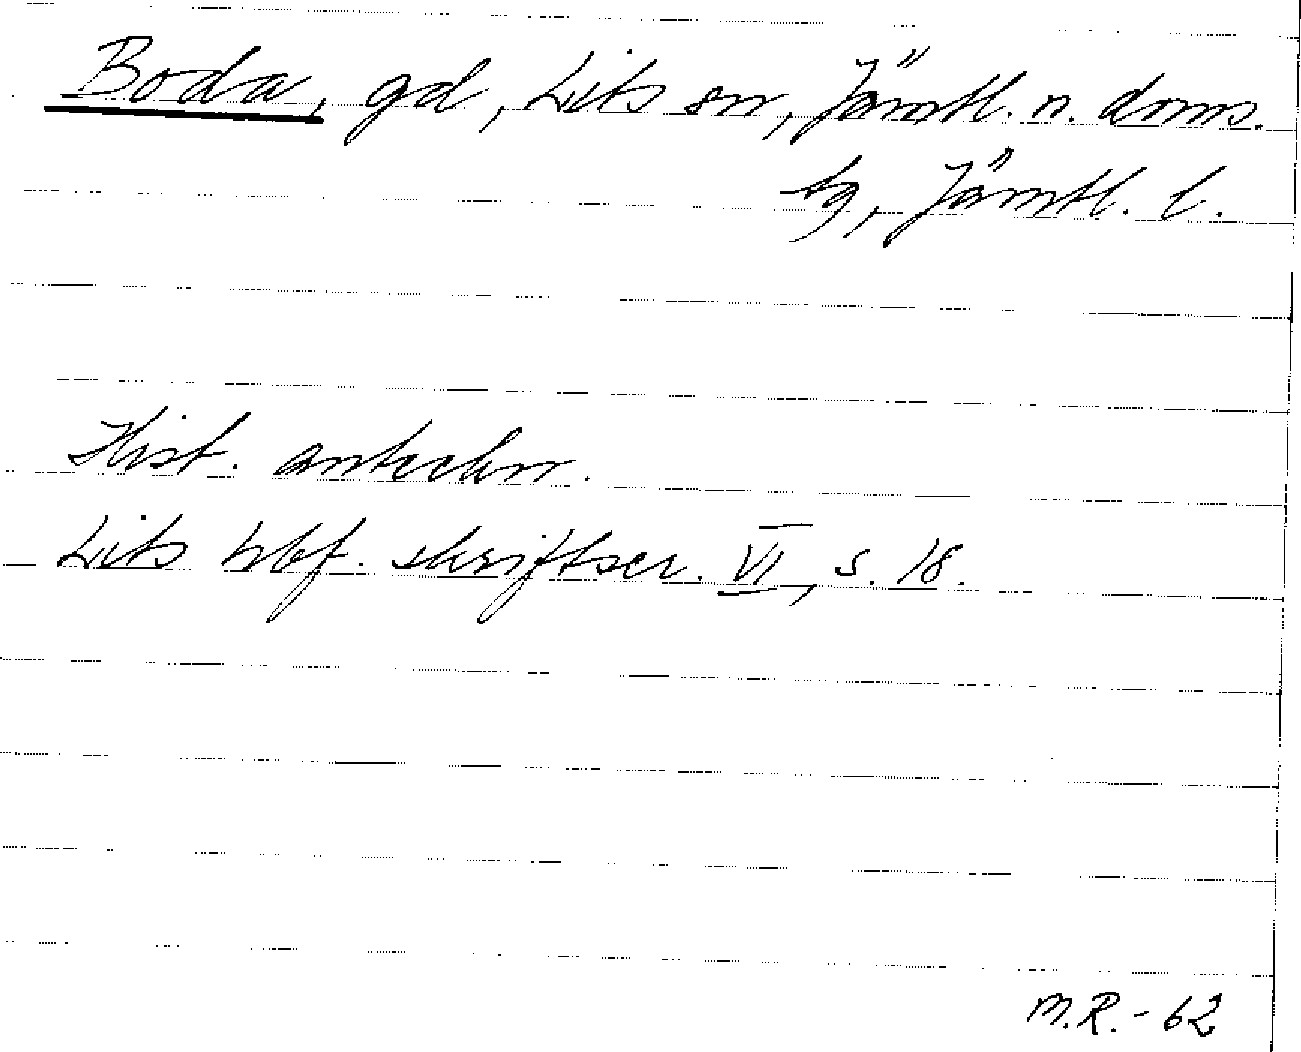 Boda, gd, Lits sn, Jämtl. n. doms.
sg, Jämtl. l.
Hist. anteckn.
Lits hbf. skriftser. VI, s. 18.
M.R. - 62